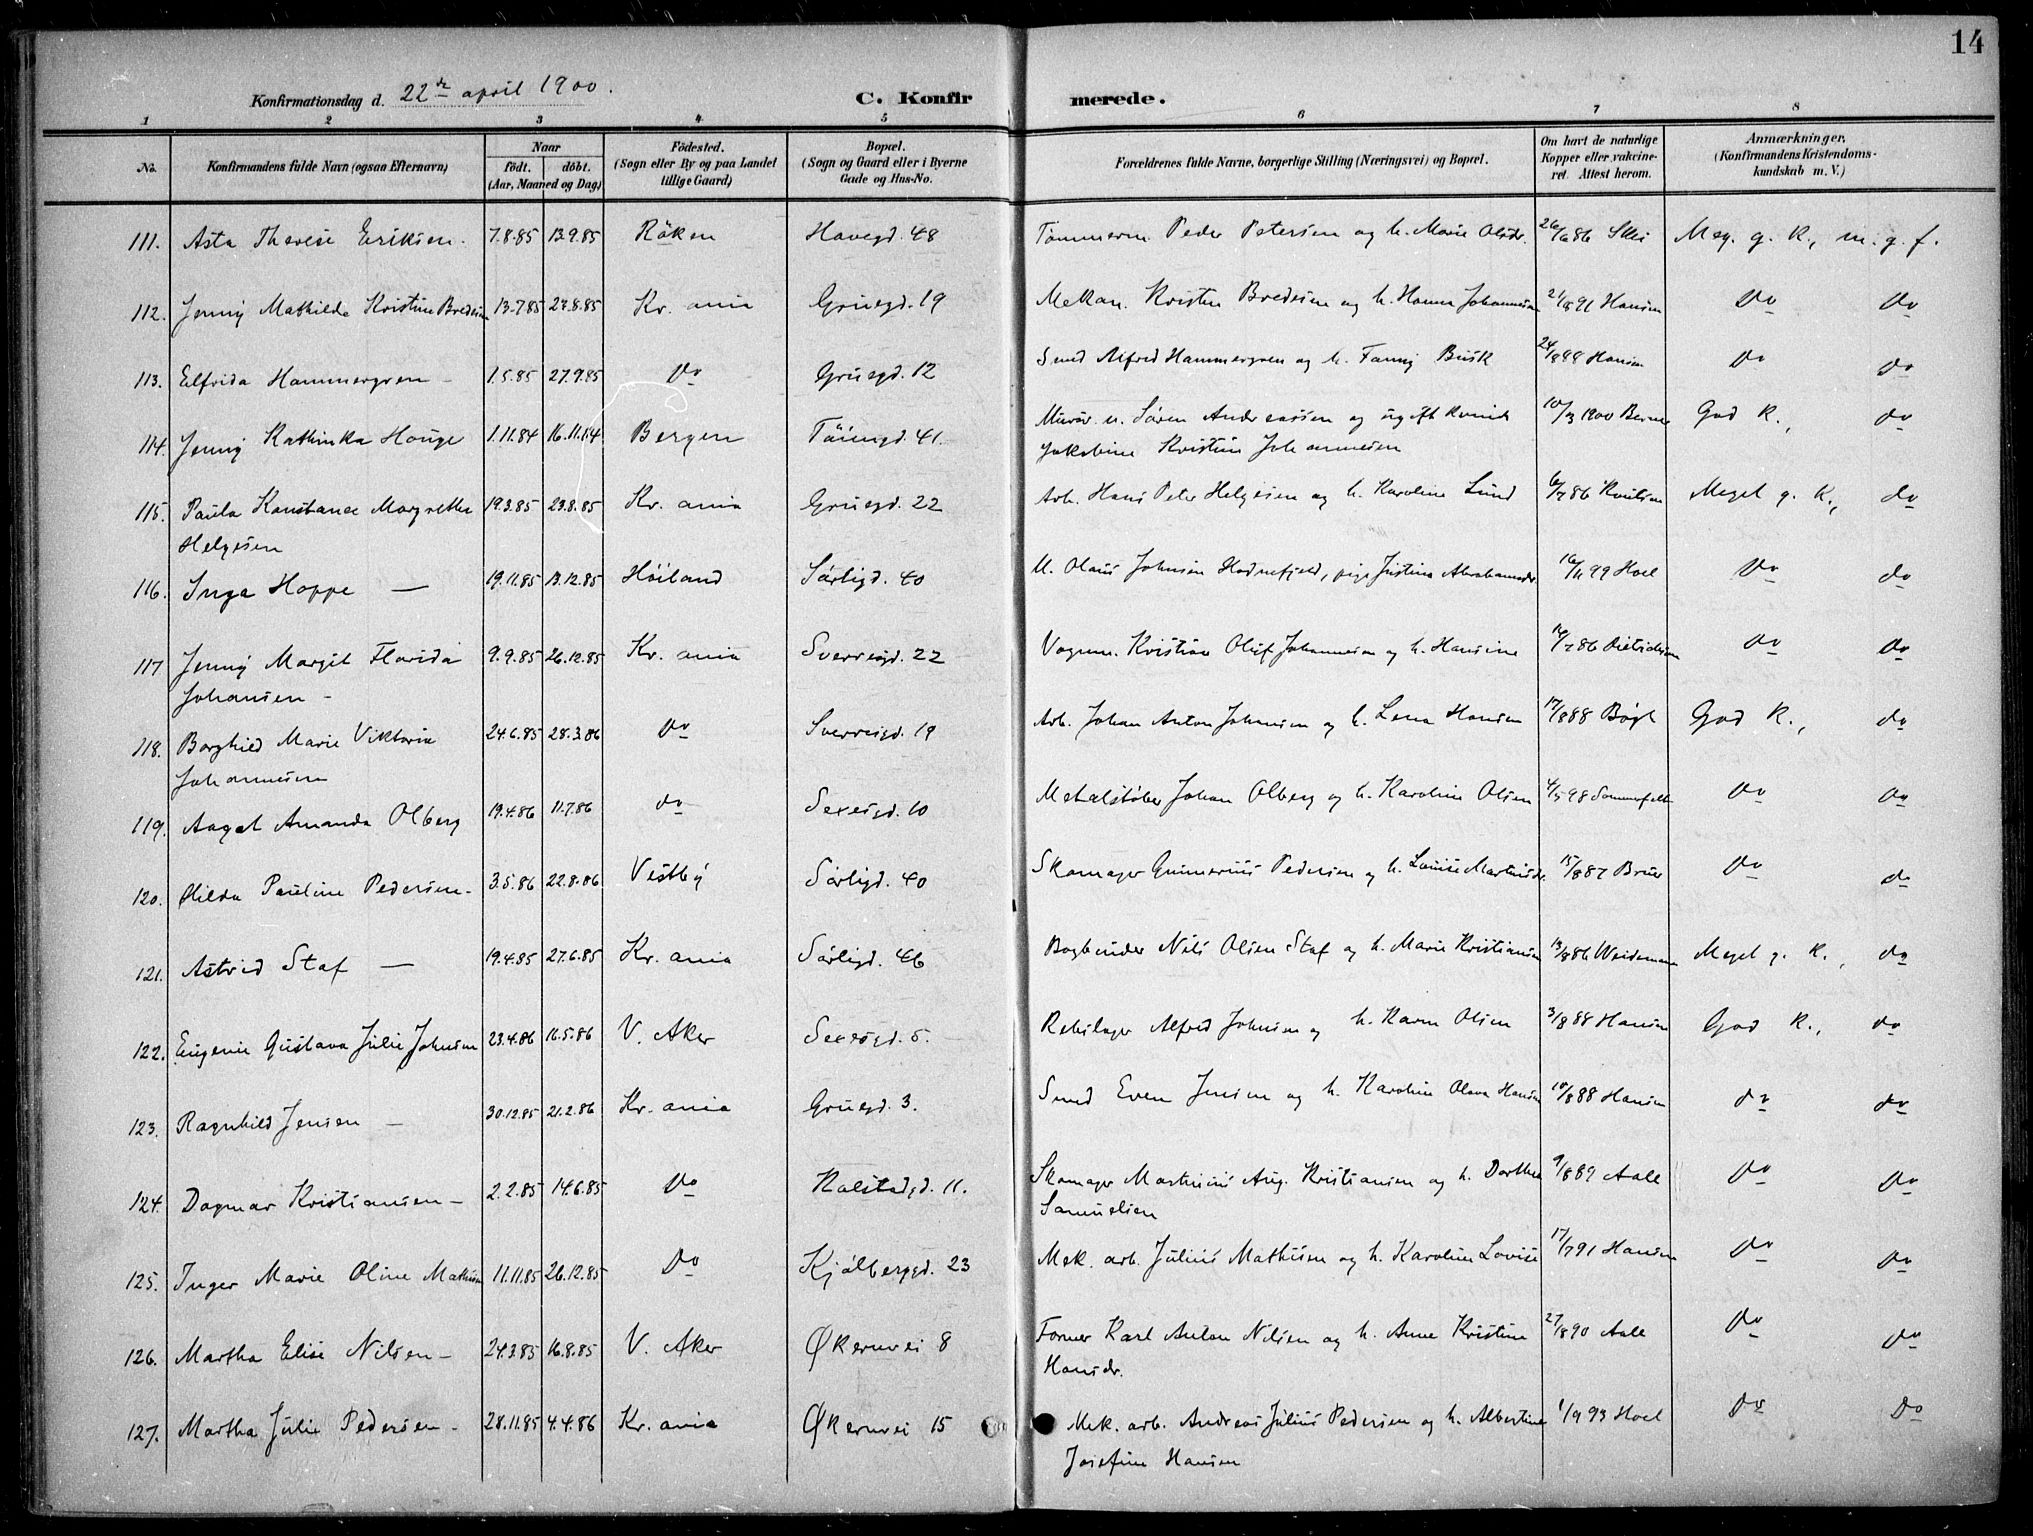 14
Konfirmationsdag d. 22de april 1900. C. Konfirmerede.
1 2 3 4 5 6 7 8
No. Konfirmandens fulde Navn (ogsaa Efternavn) Naar født. døbt. (Aar, Maaned og Dag) Fødested. (Sogn eller By og paa Landet tillige Gaard) Bopæl. (Sogn og Gaard eller i Byerne Gade og Hus-No. Forældrenes fulde Navne, borgerlige Stilling (Næringsvei) og Bopæl. Om havt de naturlige Kopper eller vakcineret. Attest herom. Anmærkninger. (Konfirmandens Kristendomskundskab m. V.)
111. Asta Therese Eriksen. 7.8.85 13.9.85 Röken Havegd. 48 Tömmerm. Peder Petersen og h. Marie Olsdr. 26/6 86 Meg. g. K., m. g. f.
112. Jenny Mathilde Kristine Bredesen 13.7.85 27.8.85 Kr. ania Gruegd. 19 Mekan. Kristen Bredesen og h. Hanna Johannesen 91 Hansen Do Do
113. Elfrida Hammergren - 1.5.85 27.9.85 Do Gruegd. 12 Smed Alfred Hammergren og h. Fanny Busk 24/8 88 Hansen Do Do
114. Jenny Kathinka Hauge 1.11.84 16.11.14 Bergen Töiengd. 41. Murer u. Sören Andreassen og ugift kvinde 10/3 1900 God K., do
Jakobine Kristine Johannesen
115. Paula Konstance Margrethe 19.3.85 23.8.85 Kr. ania Gruegd. 22 Arb. Hans Peter Helgesen og h. Karoline Lund 6/7 86 Knutsen Meget g. K., do
Helgesen
116. Inga Hoppe — 19.11.85 13.12.85 Höiland Sörligd. 40 U. Olaus Johnsen Hodnefjeld, pige Justine Abrahamsdr 99 Hoel Do do
117 Jenny Margit Florida 9.9.85 26.12.85 Kr. ania Sverresgd. 22 Vognm. Kristian Oluf Johannesen og h. Hansine 16/7 86 Dietrichson Do Do
Johansen -
118. Borghild Marie Viktoria 24.6.85 28.3.86 Do Sverresgd. 19 Arb. Johan Anton Johnsen og h. Lena Hansen 17/8 88 Bögh God K., do
Johannesen
119. Aagot Amanda Olberg 19.4.86 11.7.86 do Sexesgd. 10 Metalstöber Johan Olberg og h. Karoline Olsen 4/5 98 Sommerfelt Do Do
120. Hilda Pauline Pedersen. 3.5.86 22.8.86 Vestby Sörligd. 40 Skomager Gunnerius Pedersen og h. Louise Martinsdr. 15/8 87 Bruu Do do
121. Astrid Staf — 19.4.85 27.6.85 Kr. ania Sörligd. 46 Bogbinder Nils Olsen Staf og h. Marie Kristiansen 13/8 86 Weidemann Meget g. K., do
122. Eugenie Gustava Julie Johnsen 23.4.86 16.5.86 V. Aker Sexesgd. 5. Rebslager Alfred Johnsen og h. Karen Olsen 3/8 88 Hansen God K., do
123. Ragnhild Jensen - 30.12.85 21.2.86 Kr. ania Gruegd. 3. Smed Even Jensen og h. Karoline Olava Hansen 10/8 88 Hansen do do
124. Dagmar Kristiansen - 2.2.85 14.6.85 Do Kalstadgd. 11. Skomager Martinius Aug. Kristiansen og h. Dorthea 9/8 89 Aale Do Do
Samuelsen
125. Inger Marie Oline Mathisen 11.11.85 26.12.85 Do Kjölberggd. 23 Mek. arb. Julius Mathisen og h. Karoline Lovise 17/7 91 Hansen Do Do
126. Martha Elise Nilsen - 24.3.85 16.8.85 V. Aker Økernvei 8 Former Karl Anton Nilsen og h. Anne Kristine 27/8 90 Aale Do Do
Hansdr.
127. Martha Julie Pedersen - 28.11.85 4.4.86 Kr. ania Økernvei 15 Mek. arb. Andreas Julius Pedersen og h. Albertine 1/9 93 Hoel Do Do
Josefine Hansen